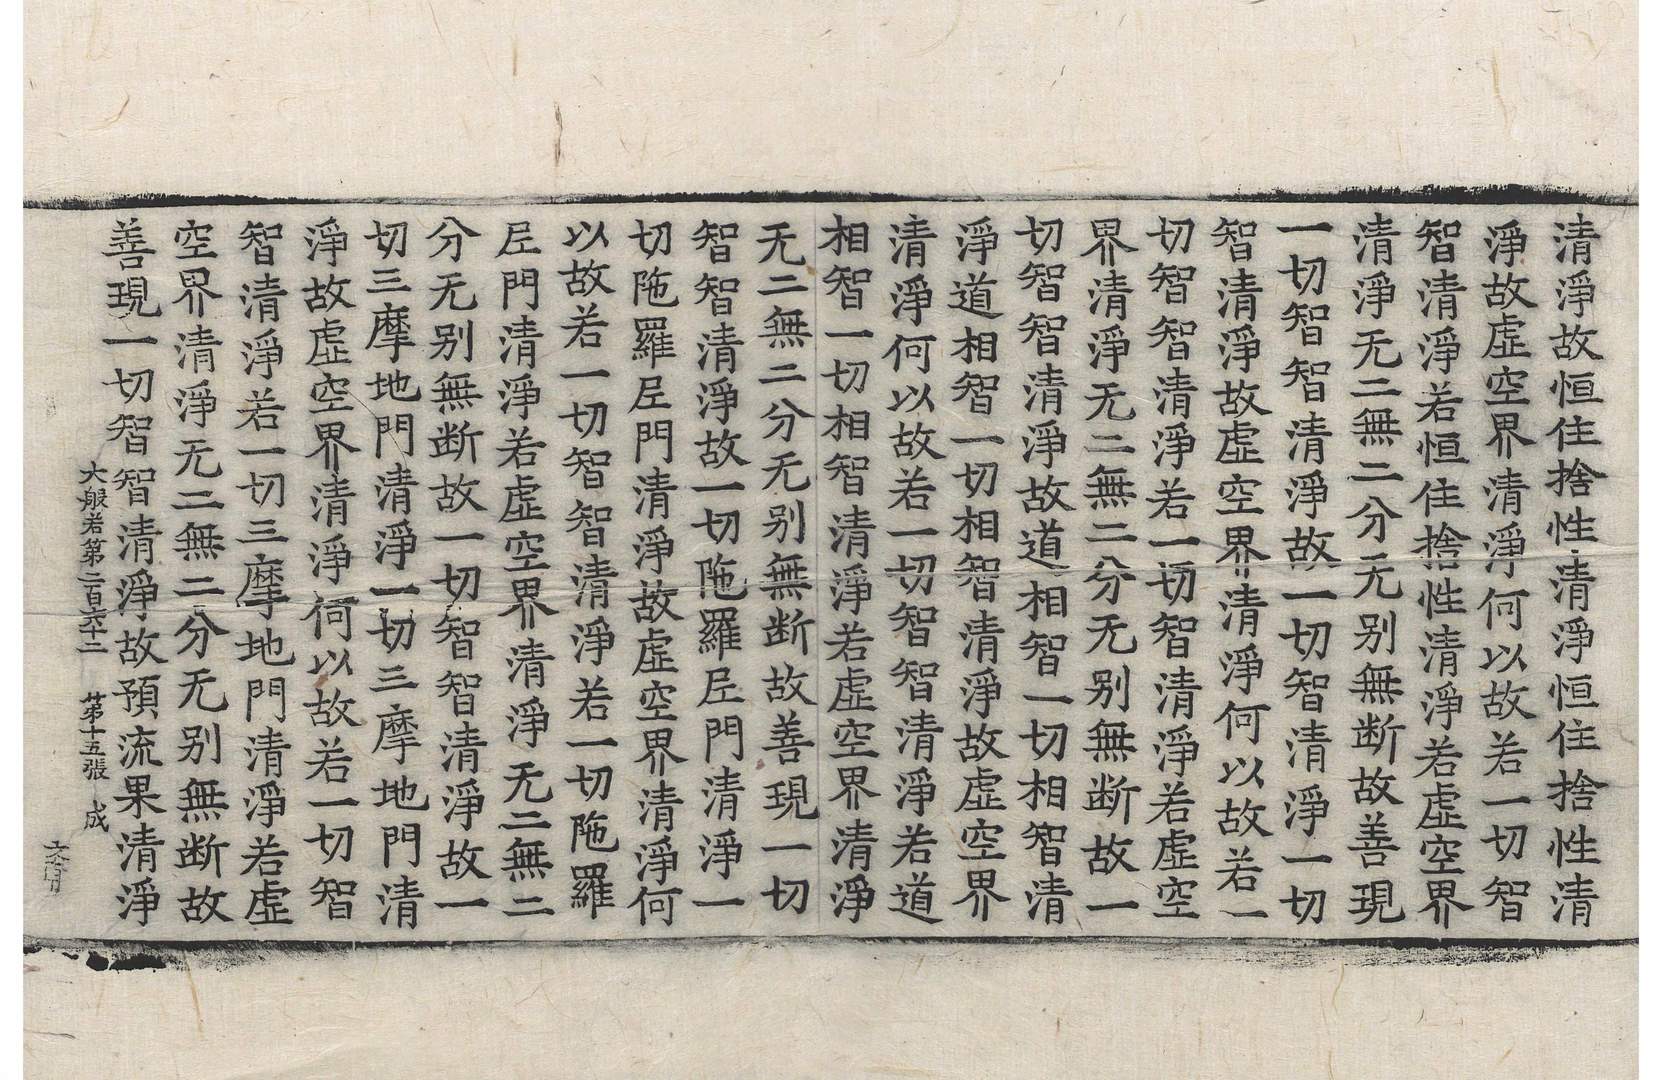 清淨故恒住捨性清淨恒住捨性清
淨故虛空界清淨何以故若一切智
智清淨若恒住捨性清淨若虛空界
清淨无二無二分无别無断故善現
一切智智清淨故一切智清淨一切
智清淨故虛空界清淨何以故若一
切智智清淨若一切智清淨若虛空
界清淨无二無二分无别無断故一
切智智清淨故道相智一切相智清
淨道相智一切相智清淨故虛空界
清淨何以故若一切智智清淨若道
相智一切相智清淨若虛空界清淨
无二無二分无别無断故善現一切
智智清淨故一切陁羅尼門清淨一
切陁羅尼門清淨故虛空界清淨何
以故若一切智智清淨若一切陁羅
尼門清淨若虛空界清淨无二無二
分无别無断故一切智智清淨故一
切三摩地門清淨一切三摩地門清
淨故虛空界清淨何以故若一切智
智清淨若一切三摩地門清淨若虛
空界清淨无二無二分无别無断故
善現一切智智清淨故預流果清淨
大般若第二百六十二 第十五張 成